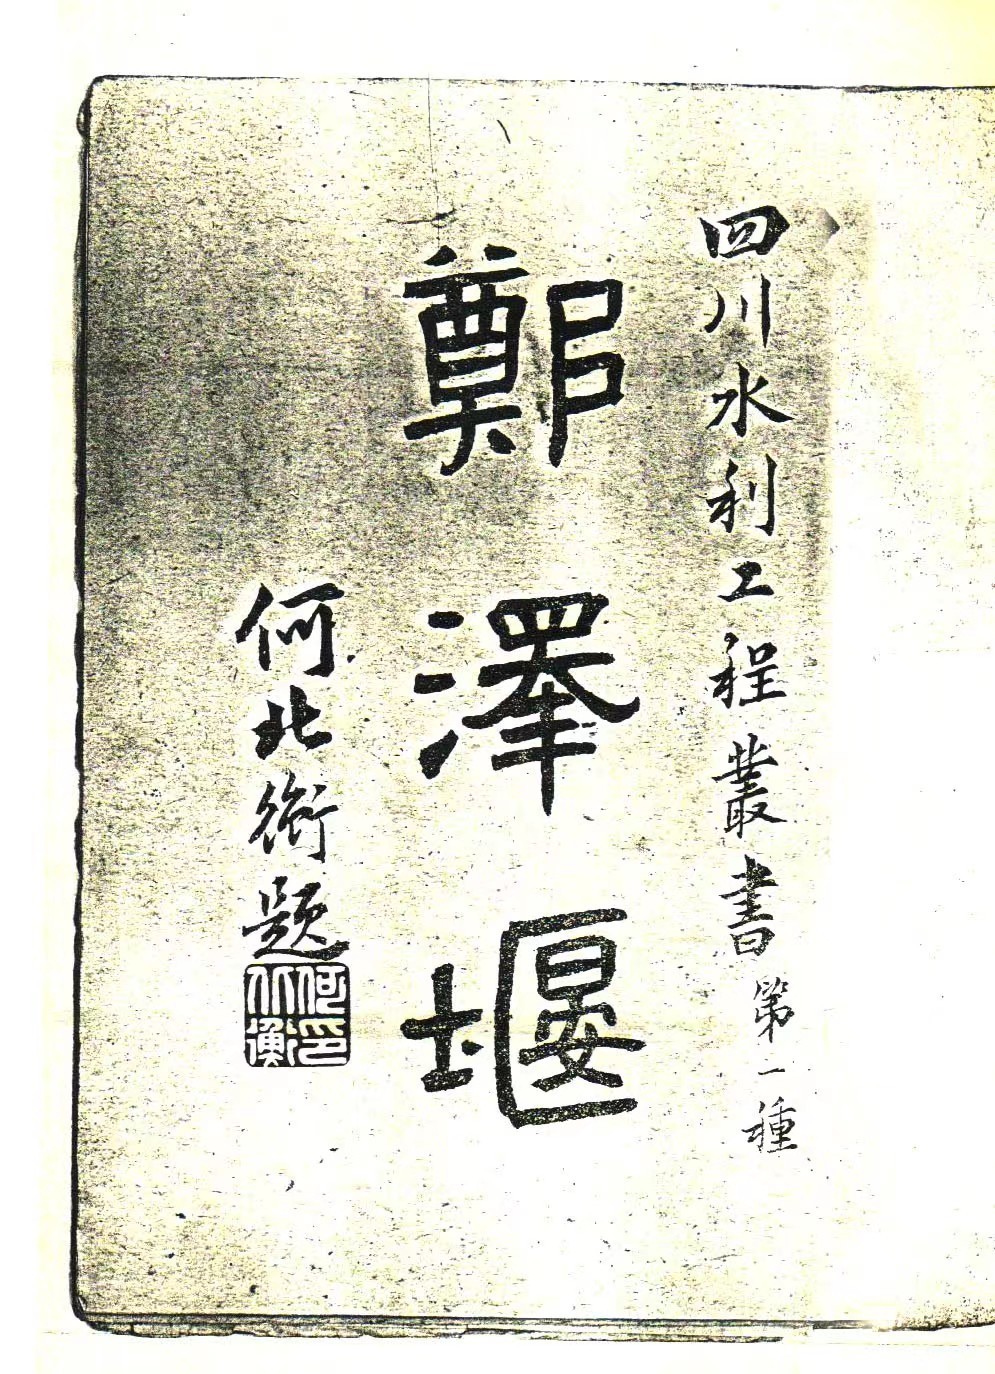 四川水利工程叢書第一種
鄭澤堰
何北衡題
何北衡印